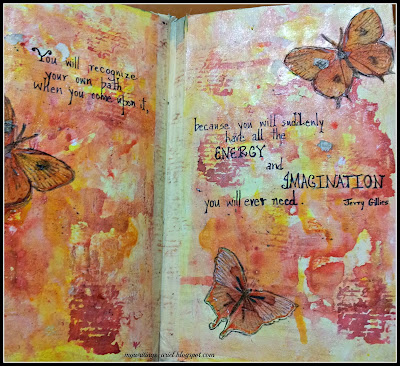 You will recognize
your own path
when you come upon it,
because you will suddenly
have all the
ENERGY
and
IMAGINATION
you will ever need.
Jerry Gillies